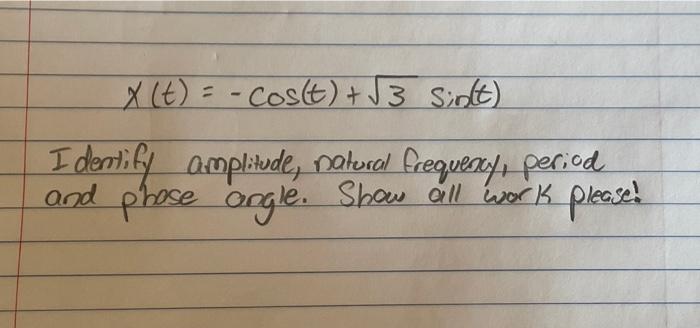 x(t) = - cos(t) + √3 sin(t)
Identify amplitude, natural frequency, period
and phase angle. Show all work please!